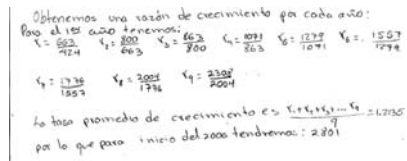 Obtenemos una razón de crecimiento por cada año:
Para el 1er año tenemos:
r₁ = 663/424 r₂ = 800/663 r₃ = 863/800 r₄ = 1071/863 r₅ = 1279/1071 r₆ = 1557/1279
r₇ = 1776/1557 r₈ = 2004/1776 r₉ = 2308/2004
La tasa promedio de crecimiento es r₁+r₂+r₃+...r₉/9 = 1.2135
por lo que para inicio del 2000 tendremos: 2801